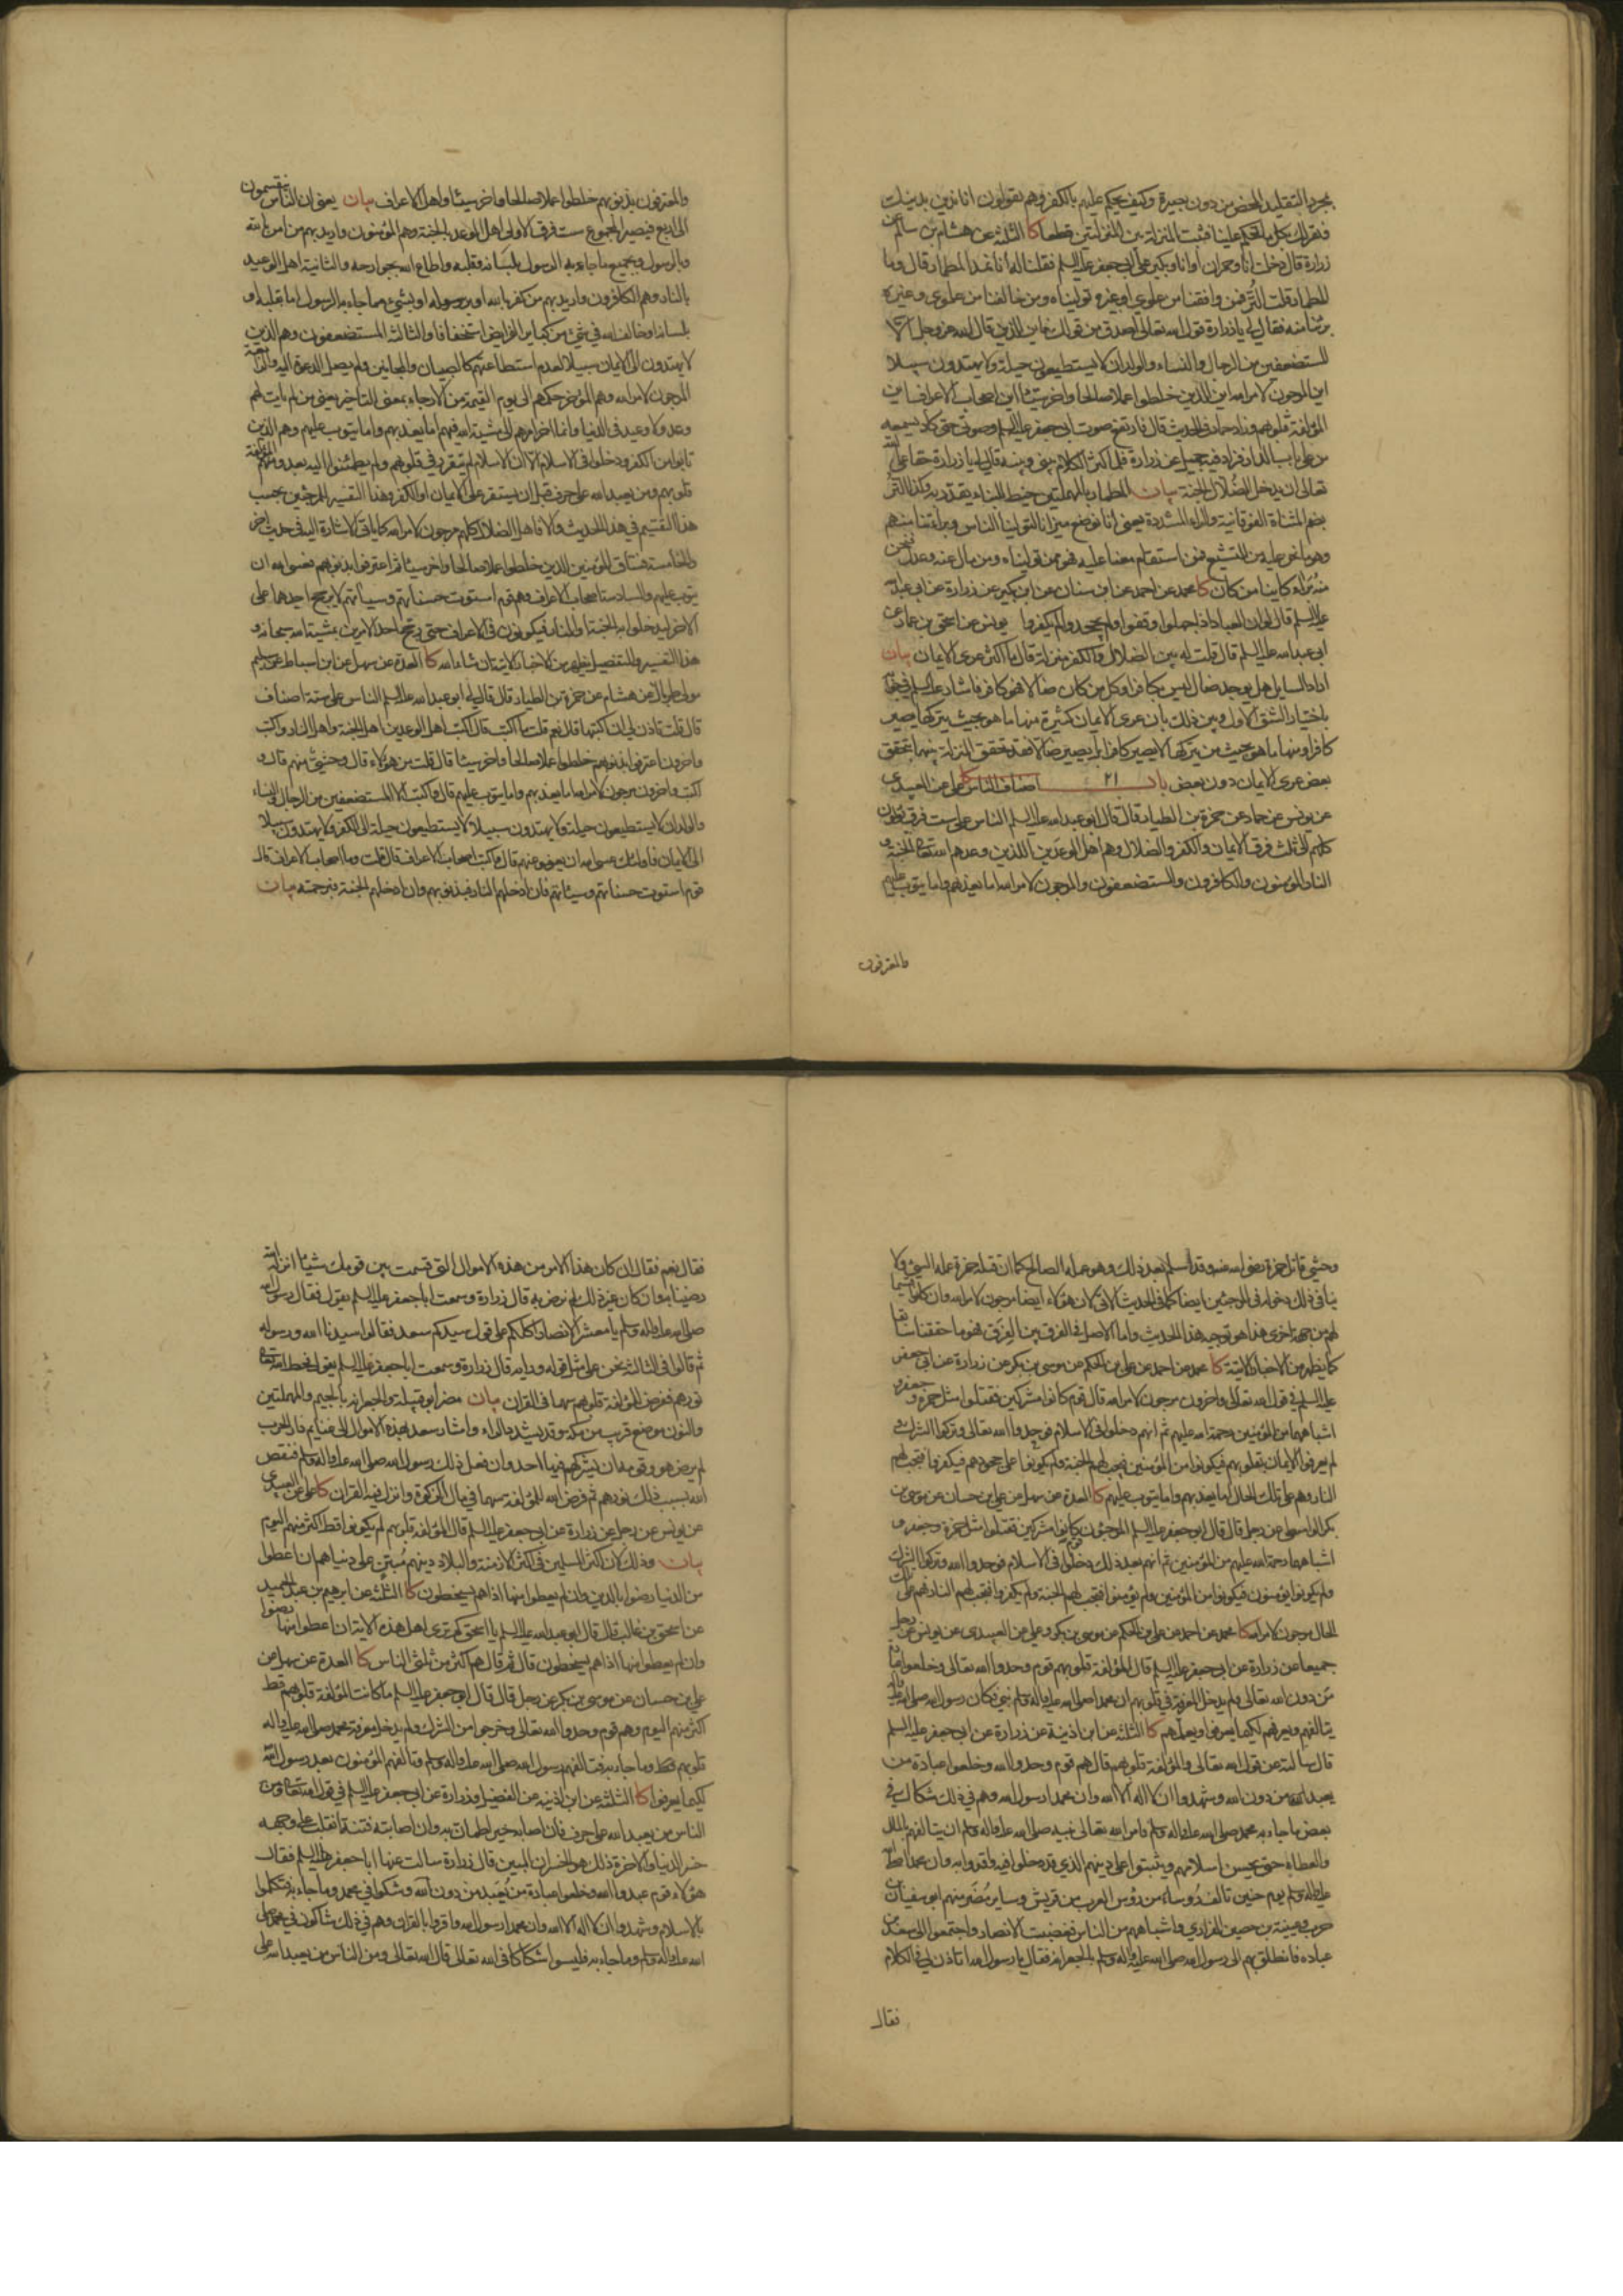 بمجرد التقليد المحض من دون بصيرة وكيف يحكم عليهم بالكفر وهم يقولون انا ندين بدينك
ونقر لك بكل ما تحكم علينا فثبت المنزلة بين المنزلتين قطعا كا الثلثة عن هشام بن سالم عن
زرارة قال دخلت انا وحمران او انا وبكير على ابي جعفر عليه السلم فقلنا له انا نمد المطمار قال وما
المطمار قلت التر فمن وافقنا من علوي او غيره توليناه ومن خالفنا من علوي وغيره
برئنا منه فقال لي يا زرارة قول الله تعالى اصدق من قولك فاين الذين قال الله عز وجل الا
المستضعفين من الرجال والنساء والولدان لا يستطيعون حيلة ولا يهتدون سبيلا
اين المرجون لامر الله اين الذين خلطوا عملا صالحا واخر سيئا اين اصحاب الاعراف اين
المؤلفة قلوبهم وزاد حماد في الحديث قال فارتفع صوت ابي جعفر عليه السلم وصوتي حتى كاد يسمعه
من على باب الدار وزاد فيه جميل عن زرارة فلما كثر الكلام بيني وبينه قال لي يا زرارة حقا على الله
تعالى ان يدخل الضلال الجنة بيان المطمار بالمهملتين خيط البناء يقدر به وكذا التر
بضم المثناة الفوقانية والراء المشددة يعني انا نوضع ميزانا لتولينا الناس وبراءتنا منهم
وهو ما نحن عليه من التشيع فمن استقام معنا عليه فهو ممن توليناه ومن مال عنه وعدل فنحن
منه براء كائنا من كان كا محمد عن احمد عن ابن سنان عن ابن بكير عن زرارة عن ابي عبد الله
عليه السلم قال لو ان العباد اذا جهلوا وقفوا ولم يجحدوا لم يكفروا يونس عن اسحق بن عمار عن
ابي عبد الله عليه السلم قال قلت له بين الضلال والكفر منزلة قال ما اكثر عرى الايمان بيان
اراد السائل هل يوجد ضال ليس بكافر او كل من كان ضالا فهو كافر فاشار عليه السلم في جوابه
باختيار الشق الاول وبين ذلك بان عرى الايمان كثيرة منها ما هو بحيث من يتركها يصير
كافرا ومنها ما هو بحيث من يتركها لا يصير كافرا بل يصير ضالا فقد تحقق المنزلة بينهما بتحقق
بعض عرى الايمان دون بعض باب ٢١ اصناف الناس كا علي عن العبيدي
عن يونس عن حماد عن حمزة بن الطيار قال قال ابو عبد الله عليه السلم الناس على ست فرق يؤلون
كلهم الى ثلث فرق الايمان والكفر والضلال وهم اهل الوعدين الذين وعدهم الله تعالى الجنة و
النار المؤمنون والكافرون والمستضعفون والمرجون لامر الله اما يعذبهم واما يتوب عليهم
والمعترفون
والمعترفون بذنوبهم خلطوا عملا صالحا واخر سيئا واهل الاعراف بيان يعني ان الناس ينقسمون
وبالرسول وبجميع ما جاء به الرسول بلسانه وقلبه واطاع الله بجوارحه والثانية اهل الوعيد
بالنار وهم الكافرون واريد بهم من كفر بالله او برسوله او بشيء مما جاء به الرسول اما بقلبه او
بلسانه او خالف الله في شيء من كبائر الفرائض استخفافا والثالثة المستضعفون وهم الذين
لا يهتدون الى الايمان سبيلا لعدم استطاعتهم كالصبيان والمجانين ومن لم يصل الدعوة اليه والرابعة
المرجون لامر الله وهم المؤخر حكمهم الى يوم القيمة من الارجاء بمعنى التاخير يعني من لم يات لهم
وعد ولا وعيد في الدنيا وانما اخر امرهم الى مشية الله فيهم اما يعذبهم واما يتوب عليهم وهم الذين
تابوا من الكفر ودخلوا في الاسلام الا ان الاسلام لم يتقرر في قلوبهم ولم يطمئنوا اليه بعد ومنهم المؤلفة
قلوبهم ومن يعبد الله على حرف قبل ان يستقر على الايمان او الكفر وهذا التفسير للمرجئين بحسب
هذا التقسيم في هذا الحديث والا فاهل الضلال كلهم مرجون لامر الله كما ياتي الاشارة اليه في حديث اخر
والخامسة فساق المؤمنين الذين خلطوا عملا صالحا واخر سيئا ثم اعترفوا بذنوبهم فعسى الله ان
يتوب عليهم والسادسة اصحاب الاعراف وهم قوم استوت حسناتهم وسيئاتهم لا يرجح احدهما على
الاخر ليدخلوا به الجنة او النار فيكونون في الاعراف حتى يرجح احد الامرين بمشية الله سبحانه و
هذا التفسير والتفصيل يظهر من الاخبار الاتية ان شاء الله كا العدة عن سهل عن ابن اسباط عن سليم
مولى طربال عن هشام عن حمزة بن الطيار قال قال لي ابو عبد الله عليه السلم الناس على ستة اصناف
قال قلت تاذن لي ان اكتبها قال نعم قلت ما اكتب قال اكتب اهل الوعيد من اهل الجنة واهل النار واكتب
واخرون اعترفوا بذنوبهم خلطوا عملا صالحا واخر سيئا قال قلت من هؤلاء قال وحشي منهم قال و
اكتب واخرون مرجون لامر الله اما يعذبهم واما يتوب عليهم قال واكتب الا المستضعفين من الرجال والنساء
والولدان لا يستطيعون حيلة ولا يهتدون سبيلا لا يستطيعون حيلة الى الكفر ولا يهتدون سبيلا
الى الايمان فاولئك عسى الله ان يعفو عنهم قال واكتب اصحاب الاعراف قال قلت وما اصحاب الاعراف قال
قوم استوت حسناتهم وسيئاتهم فان ادخلهم النار فبذنوبهم وان ادخلهم الجنة فبرحمته بيان
وحشي قاتل حمزة رضي الله عنه وقد اسلم بعد ذلك وهو عمله الصالح كما ان قتله حمزة عمله السيئ ولا
ينافي ذلك دخوله في المرجئين ايضا كما في الحديث الاتي لان هؤلاء ايضا مرجون لامر الله وان كانوا قسيما
لهم من جهة اخرى هذا هو توجيه هذا الحديث واما الاصل في الفرق بين الفرق فهو ما حققنا سابقا
كما يظهر من الاخبار الاتية كا محمد عن احمد عن علي بن الحكم عن موسى بن بكر عن زرارة عن ابي جعفر
عليه السلم في قول الله تعالى واخرون مرجون لامر الله قال قوم كانوا مشركين فقتلوا مثل حمزة وجعفر و
اشباههما من المؤمنين رحمة الله عليهم ثم انهم دخلوا في الاسلام فوحدوا الله تعالى وتركوا الشرك و
لم يعرفوا الايمان بقلوبهم فيكونوا من المؤمنين فيجب لهم الجنة ولم يكونوا على جحودهم فيكفروا فيجب لهم
النار وهم على تلك الحال اما يعذبهم واما يتوب عليهم كا العدة عن سهل عن علي بن حسان عن موسى بن
بكر الواسطي عن رجل قال قال ابو جعفر عليه السلم المرجون قوم كانوا مشركين فقتلوا مثل حمزة وجعفر و
اشباههما رحمة الله عليهم من المؤمنين ثم انهم بعد ذلك دخلوا في الاسلام فوحدوا الله وتركوا الشرك
ولم يكونوا يؤمنون فيكونوا من المؤمنين ولم يؤمنوا فيجب لهم الجنة ولم يكفروا فيجب لهم النار فهم على تلك
الحال مرجون لامر الله كا محمد عن احمد عن علي بن الحكم عن موسى بن بكر وعلي عن العبيدي عن يونس عن رجل
جميعا عن زرارة عن ابي جعفر عليه السلم قال المؤلفة قلوبهم قوم وحدوا الله تعالى وخلعوا عبادة
من دون الله تعالى ولم يدخل المعرفة في قلوبهم ان محمدا صلى الله عليه واله وسلم نبي فكان رسول الله صلى الله عليه واله
يتالفهم ويعرفهم لكيما يعرفوا ويعلمهم كا الثلثة عن ابن اذينة عن زرارة عن ابي جعفر عليه السلم
قال سالته عن قول الله تعالى والمؤلفة قلوبهم قال هم قوم وحدوا الله وخلعوا عبادة من
يعبد من دون الله وشهدوا ان لا اله الا الله وان محمدا رسول الله وهم في ذلك شكاك في
بعض ما جاء به محمد صلى الله عليه واله وسلم فامر الله تعالى نبيه صلى الله عليه واله وسلم ان يتالفهم بالمال
والعطاء حتى يحسن اسلامهم ويثبتوا على دينهم الذي قد دخلوا فيه واقروا به وان محمدا صلى الله
عليه واله وسلم يوم حنين تالف رؤساء من رؤس العرب من قريش وساير مضر منهم ابو سفيان بن
حرب وعيينة بن حصين الفزاري واشباههم من الناس فغضبت الانصار واجتمعوا الى سعد بن
عباده فانطلق بهم الى رسول الله صلى الله عليه واله وسلم بالجعرانة فقال يا رسول الله اتاذن لي في الكلام
فقال
فقال نعم فقال ان كان هذا الامر من هذه الاموال التي قسمت بين قومك شيئا انزله الله
رضينا به وان كان غير ذلك لم نرض به قال زرارة وسمعت ابا جعفر عليه السلم يقول فقال رسول الله
صلى الله عليه واله وسلم يا معشر الانصار اكلكم على قول سيدكم سعد فقالوا سيدنا الله ورسوله
ثم قالوا في الثالثة نحن على مثل قوله ورايه قال زرارة وسمعت ابا جعفر عليه السلم يقول فحط الله تعالى
نورهم ففرض للمؤلفة قلوبهم سهما في القران بيان مضر ابو قبيلة والجعرانة بالجيم والمهملتين
والنون موضع قريب من مكة وقد يشدد الراء واشار سعد بهذه الاموال الى غنايم دار الحرب
لم يرض هو وقومه ان يشركهم فيها احد وان فعل ذلك رسول الله صلى الله عليه واله وسلم فنقص
الله بسبب ذلك نورهم ثم فرض الله للمؤلفة سهما في مال الزكوة وانزل فيه القران كا علي عن العبيدي
عن يونس عن رجل عن زرارة عن ابي جعفر عليه السلم قال المؤلفة قلوبهم لم يكونوا قط اكثر منهم اليوم
بيان وذلك لان اكثر المسلمين في اكثر الازمنة والبلاد دينهم مبتن على دنياهم ان اعطوا
من الدنيا رضوا بالدين وان لم يعطوا منها اذا هم يسخطون كا الثلثة عن ابرهيم بن عبد الحميد
عن اسحق بن غالب قال قال ابو عبد الله عليه السلم يا اسحق كم ترى اهل هذه الاية ان اعطوا منها رضوا
وان لم يعطوا منها اذا هم يسخطون قال ثم قال هم اكثر من ثلثي الناس كا العدة عن سهل عن
علي بن حسان عن موسى بن بكر عن رجل قال قال ابو جعفر عليه السلم ما كانت المؤلفة قلوبهم قط
اكثر منهم اليوم وهم قوم وحدوا الله تعالى وخرجوا من الشرك ولم يدخل معرفة محمد صلى الله عليه واله
قلوبهم وما جاء به فتالفهم رسول الله صلى الله عليه واله وسلم وتالفهم المؤمنون بعد رسول الله
لكيما يعرفوا كا الثلثة عن ابن اذينة عن الفضيل وزرارة عن ابي جعفر عليه السلم في قول الله تعالى ومن
الناس من يعبد الله على حرف فان اصابه خير اطمان به وان اصابته فتنة انقلب على وجهه
خسر الدنيا والاخرة ذلك هو الخسران المبين قال زرارة سالت عنها ابا جعفر عليه السلم فقال
هؤلاء قوم عبدوا الله وخلعوا عبادة من يعبد من دون الله وشكوا في محمد وما جاء به فتكلموا
بالاسلام وشهدوا ان لا اله الا الله وان محمدا رسول الله واقروا بالقران وهم في ذلك شاكون في محمد صلى
الله عليه واله وسلم وما جاء به فليسوا شكاكا في الله تعالى قال الله تعالى ومن الناس من يعبد الله على